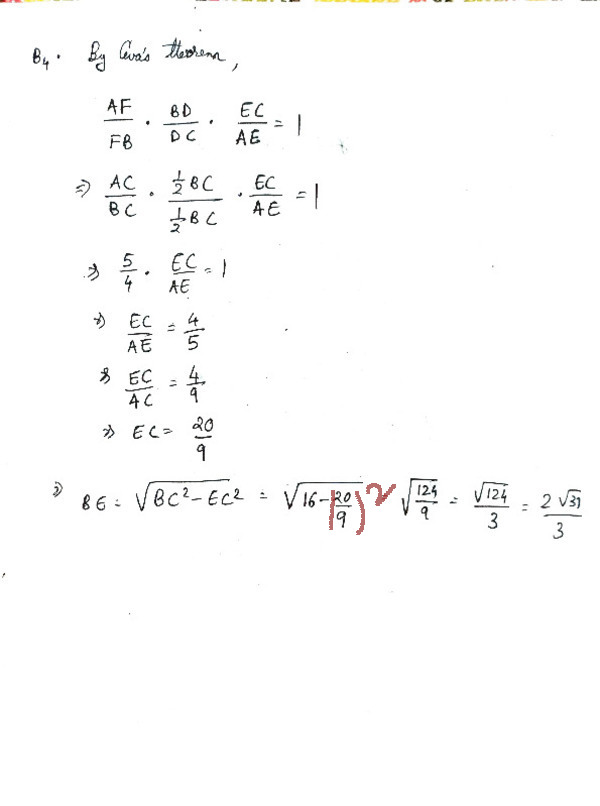 B4. By Ceva's theorem,
AF/FB · BD/DC · EC/AE = 1
⇒ AC/BC · (1/2 BC)/(1/2 BC) · EC/AE = 1
⇒ 5/4 · EC/AE = 1
⇒ EC/AE = 4/5
⇒ EC/AC = 4/9
⇒ EC = 20/9
⇒ BE = √(BC² - EC²) = √(16 - (20/9)²) √(124/9) = √124/3 = 2√31/3